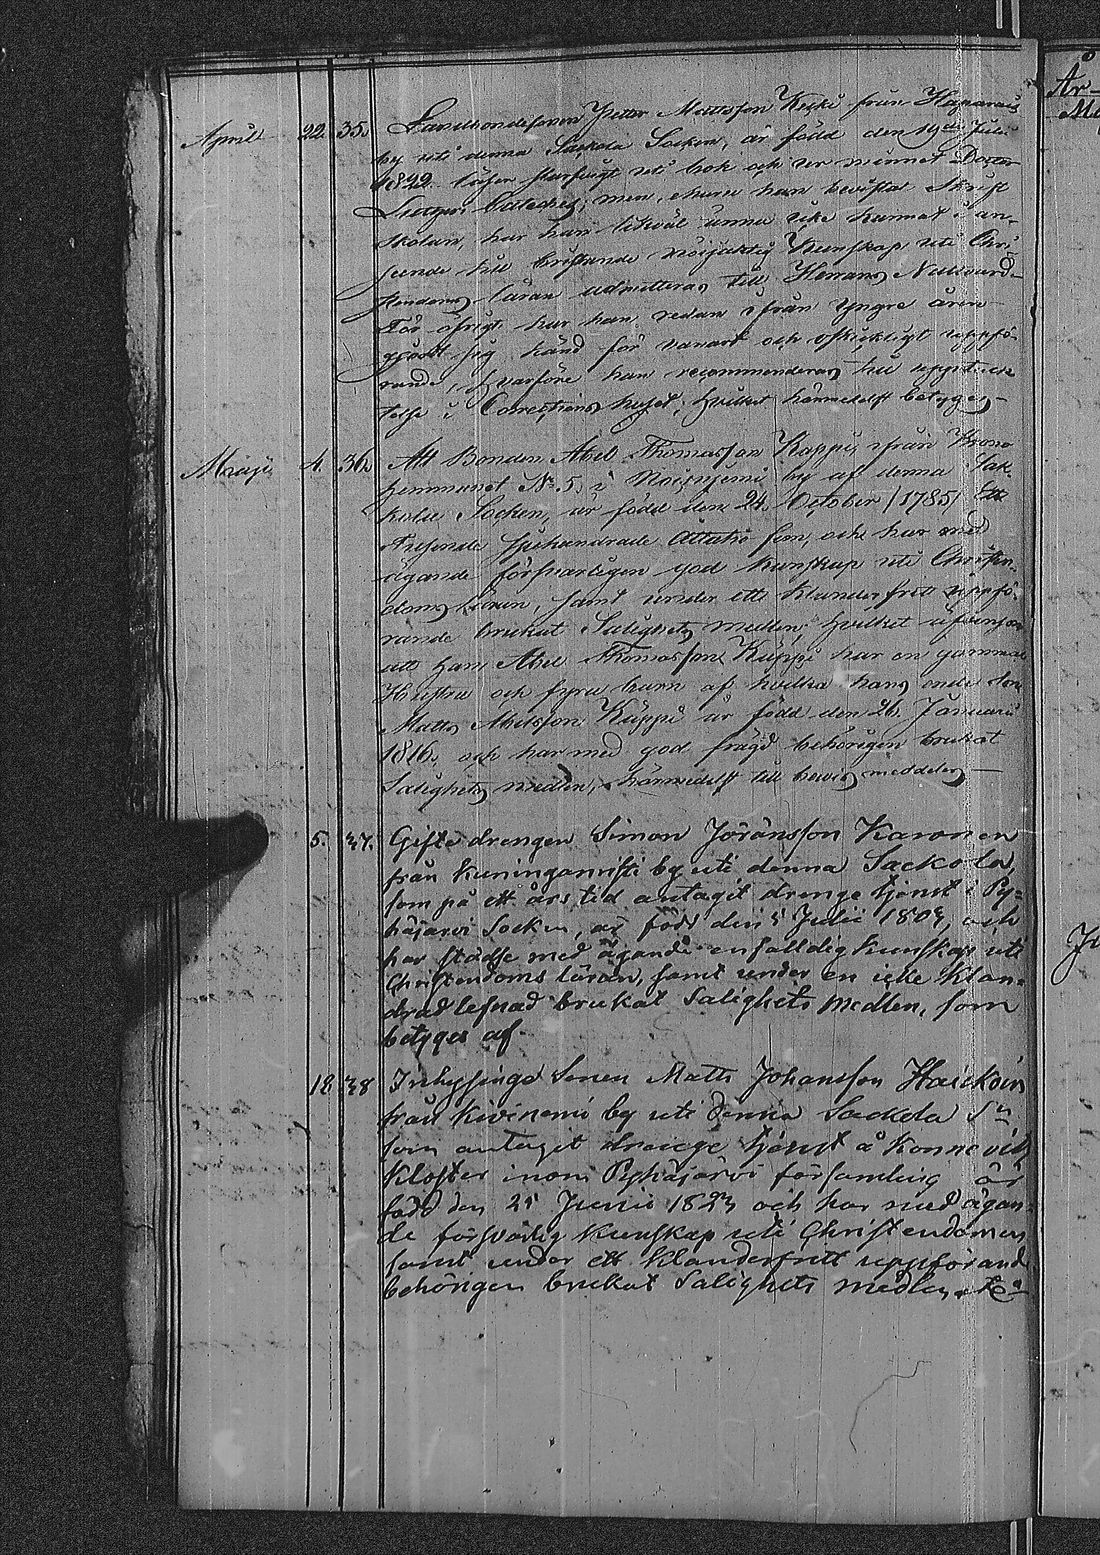 April 22. 35. Landbondesonen Petter Mattsson Keski från Haparais
by uti denna Sackola Socken, är född den 19de Julii
1822. läser färdigt uti bok och ur minnet Doctor
Luthers Cateches; men, ehuru han bevistat Skrift
skolan, har han likväl ännu icke kunnat i an-
seende till bristande nöijaktig Kunskap uti Chri
stendoms läran admitteras till Herrans Nattvard
För öfrigt har han redan ifrån yngre åren
gjordt sig känd för vanart och oskickligt uppfö-
rande, hvarföre han recommenderas till upptuck
telse i Corrections huset, hvilket härmedelst betyges
Maiji 4. 36. Att Bonden Abel Thomasson Kappi, ifrån Krono
hemmanet No 5. i Noisniemi by af denna Sak-
kola Socken, är född den 24. October /1785/ Ett
Tusende Sjuhundrade Åttatio fem, och har med
ägande försvarligen god kunskap uti Christen-
doms läran, samt under ett klanderfritt uppfö-
rande brukat Salighets medlen; hvilket äfvensom
att han Abel Thomasson Kappi har en gammal
Hustru och fyra barn af hvilka hans ende son
Matts Abelsson Kappi är född den 26. Januarii
1816. och har med god frägd behörigen brukat
Salighets medlen, härmedelst till bevis meddelas
5. 37. Gifte drengen Simon Jöransson Karonen
från Kuninganristi by uti denna Sackola,
som på ett års tid antagit drenge tjenst i Py-
häjärvi Socken, är född den 5 Julii 1803, och
har städse med ägande enfalldig kunskap uti
Christendoms läran, samt under en icke klan-
drad lefnad brukat Salighets Medlen, som
betyges af
12 38 Inhysinge Sonen Matts Johansson Haukoin
från Kivinemi by uti denna Sackola Sn
som antagit drenge tjenst å Konnevits
Kloster inom Pyhäjärvi församling är
född den 25 Junii 1823 och har med ägan-
de försvarlig kunskap uti Christendomen
samt under ett klanderfritt uppförand
behörigen brukat Salighets medlen
År-